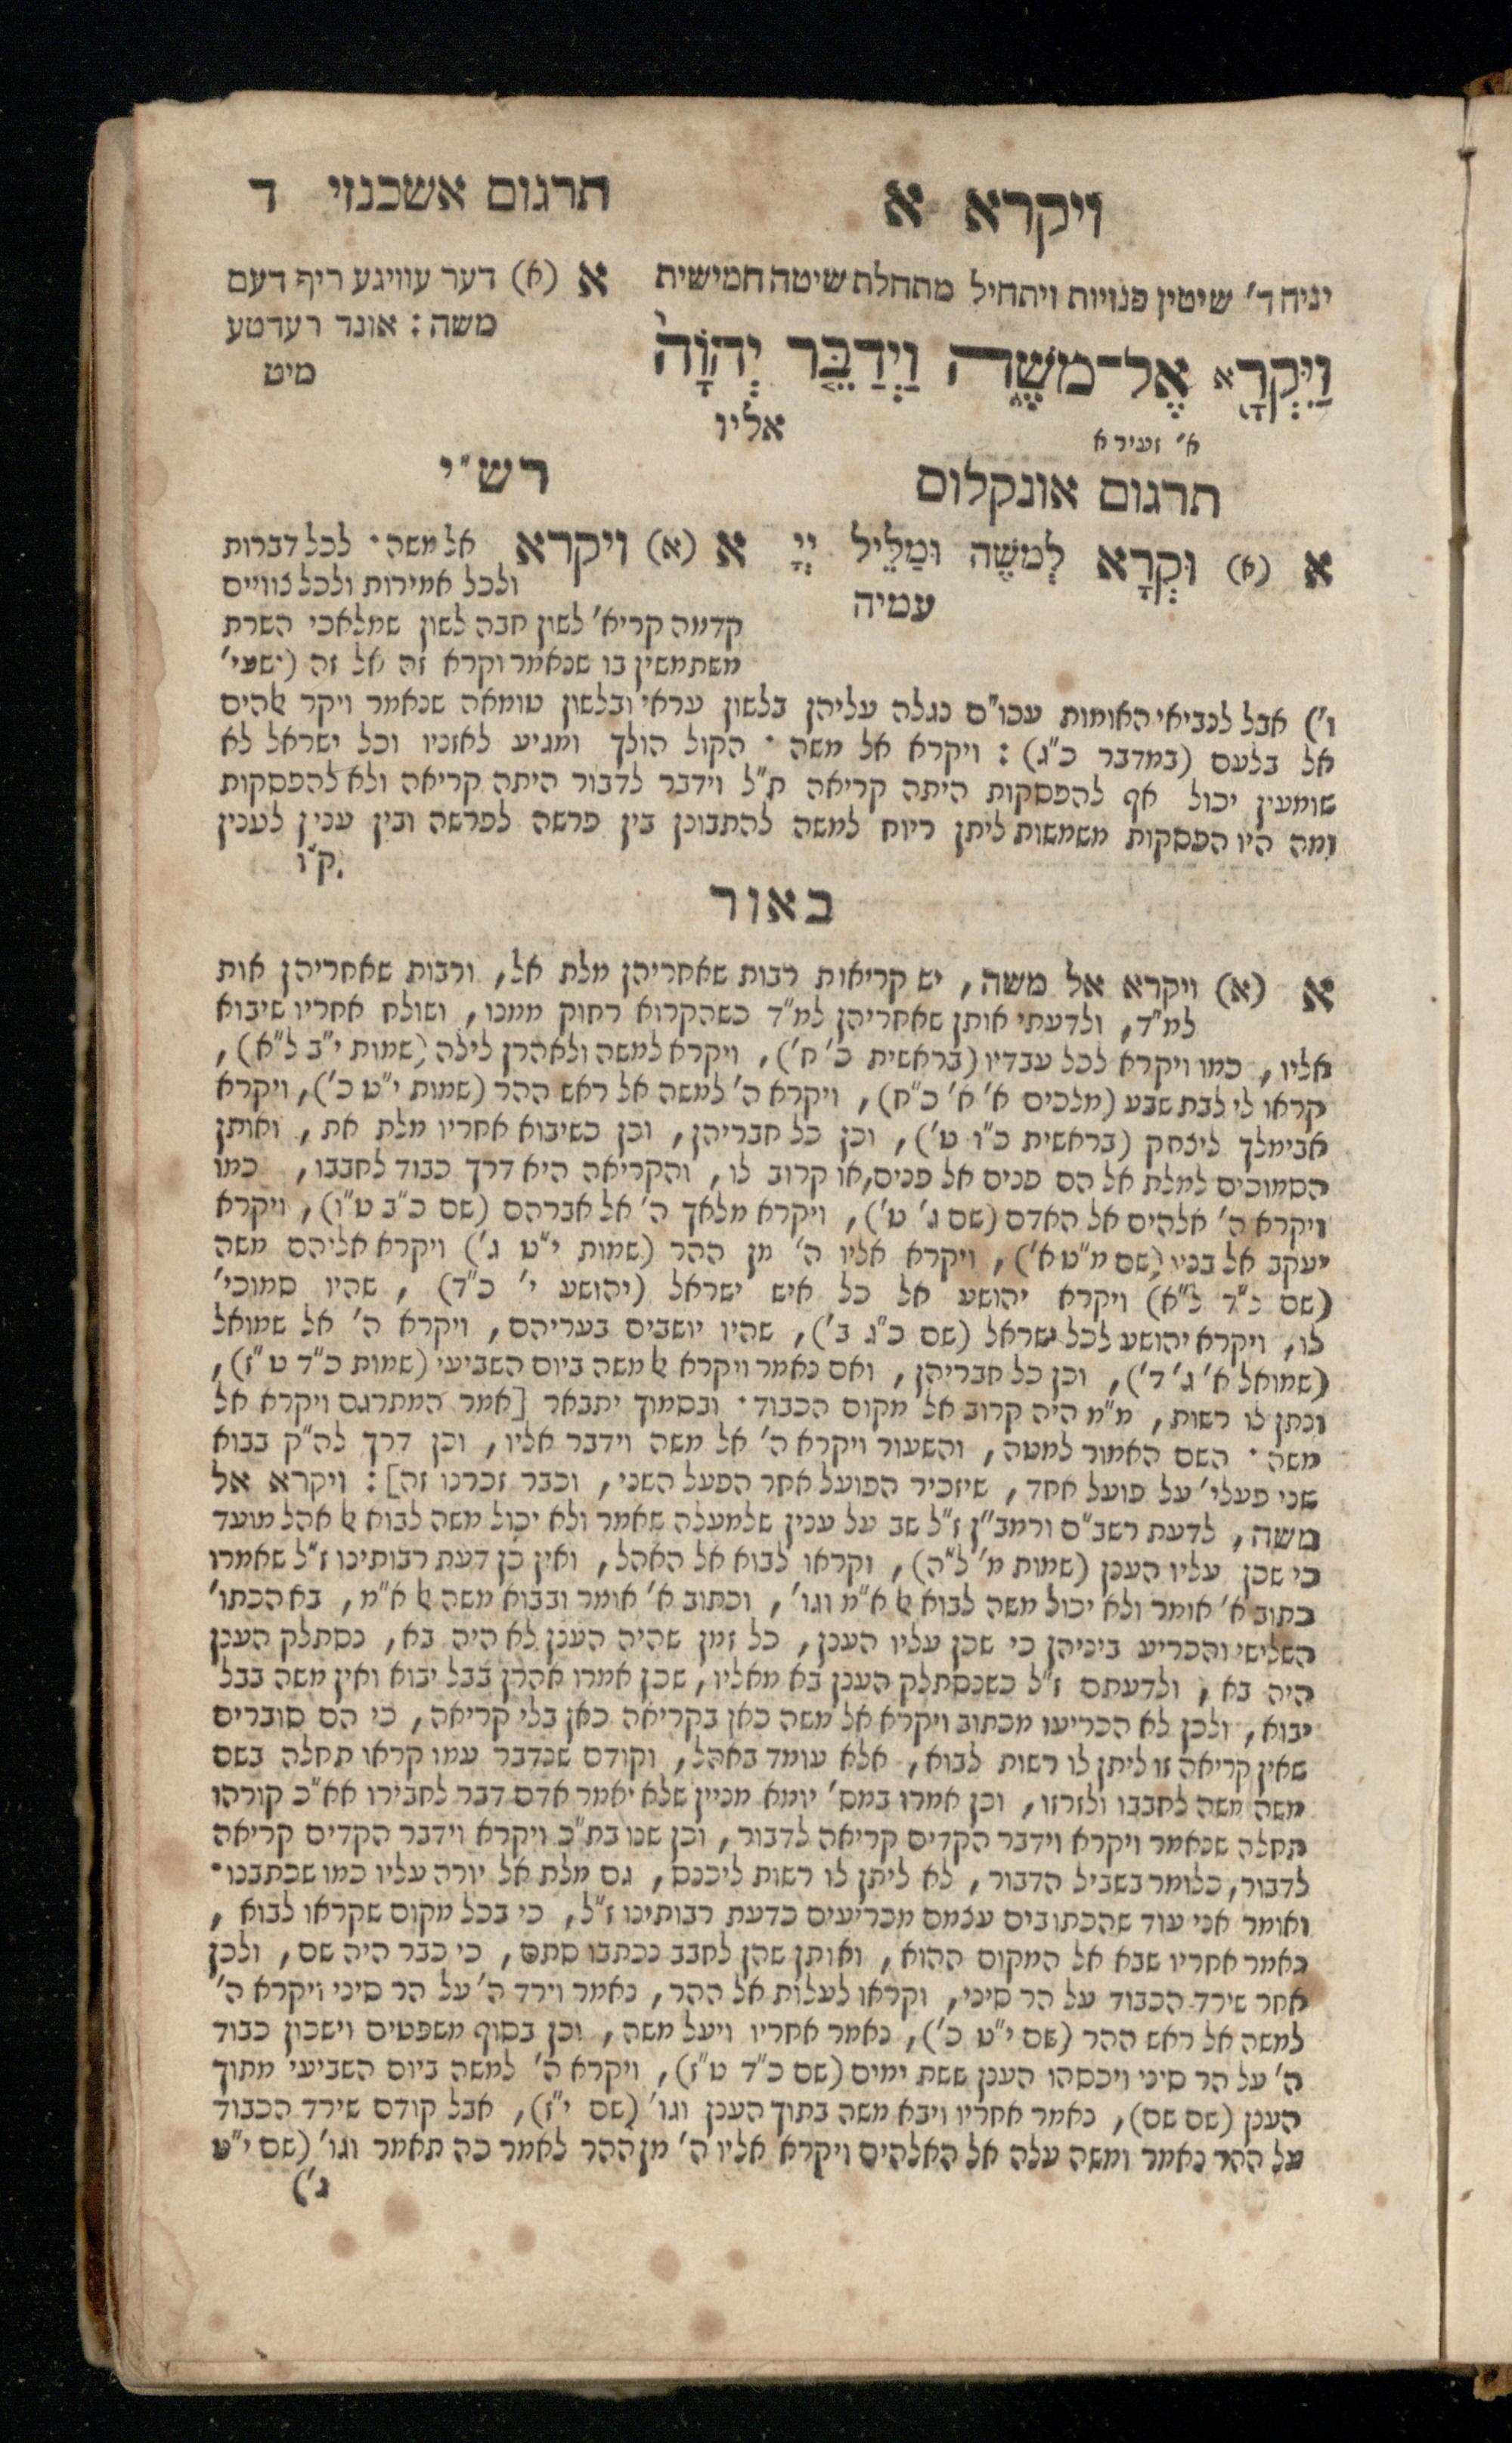 ויקרא א
תרגום אשכנזי ד
יניח ד' שיטין פנויות ויתחיל מתחלת שיטה חמישית
וַיִּקְרָא אֶל־מֹשֶׁה וַיְדַבֵּר יְהוָֹה
אליו
א' זעירא
א (א) דער עוויגע ריף דעם
משה : אונד רעדטע
מיט
תרגום אונקלוס
א (א) וּקְרָא לְמֹשֶׁה וּמַלֵּיל יְיָ
עמיה
רש"י
א (א) ויקרא אל משה · לכל דברות
ולכל אמירות ולכל צוויים
קדמה קריא' לשון חבה לשון שמלאכי השרת
משתמשין בו שנאמר וקרא זה אל זה (ישעי'
ו') אבל לנביאי האומות עכו"ם נגלה עליהן בלשון עראי ובלשון טומאה שנאמר ויקר אלהים
אל בלעם (במדבר כ"ג) : ויקרא אל משה · הקול הולך ומגיע לאזניו וכל ישראל לא
שומעין יכול אף להפסקות היתה קריאה ת"ל וידבר לדבור היתה קריאה ולא להפסקות
ומה היו הפסקות משמשות ליתן ריוח למשה להתבונן בין פרשה לפרשה ובין ענין לענין
ק"ו
באור
א (א) ויקרא אל משה, יש קריאות רבות שאחריהן מלת אל, ורבות שאחריהן אות
למ"ד, ולדעתי אותן שאחריהן למ"ד כשהקרוא רחוק ממנו, ושולח אחריו שיבוא
אליו, כמו ויקרא לכל עבדיו (בראשית כ' ח'), ויקרא למשה ולאהרן לילה (שמות י"ב ל"א),
קראו לי לבת שבע (מלכים א' א' כ"ח), ויקרא ה' למשה אל ראש ההר (שמות י"ט כ'), ויקרא
אבימלך ליצחק (בראשית כ"ו ט'), וכן כל חבריהן, וכן כשיבוא אחריו מלת את, ואותן
הסמוכים למלת אל הם פנים אל פנים, או קרוב לו, והקריאה היא דרך כבוד לחבבו, כמו
ויקרא ה' אלהים אל האדם (שם ג' ט'), ויקרא מלאך ה' אל אברהם (שם כ"ב ט"ו), ויקרא
יעקב אל בניו (שם מ"ט א'), ויקרא אליו ה' מן ההר (שמות י"ט ג') ויקרא אליהם משה
(שם ל"ד ל"א) ויקרא יהושע אל כל איש ישראל (יהושע י' כ"ד), שהיו סמוכי'
לו, ויקרא יהושע לכל ישראל (שם כ"ג ב'), שהיו יושבים בעריהם, ויקרא ה' אל שמואל
(שמואל א' ג' ד'), וכן כל חבריהן, ואם נאמר ויקרא אל משה ביום השביעי (שמות כ"ד ט"ז),
ונתן לו רשות, מ"מ היה קרוב אל מקום הכבוד · ובסמוך יתבאר [אמר המתרגם ויקרא אל
משה · השם האמור למטה, והשעור ויקרא ה' אל משה וידבר אליו, וכן דרך לה"ק בבוא
שני פעלי' על פועל אחד, שיזכיר הפועל אחר הפעל השני, וכבר זכרנו זה] : ויקרא אל
משה, לדעת רשב"ם ורמב"ן ז"ל שב על ענין שלמעלה שאמר ולא יכול משה לבוא אל אהל מועד
כי שכן עליו הענן (שמות מ' ל"ה), וקראו לבוא אל האהל, ואין כן דעת רבותינו ז"ל שאמרו
כתוב א' אומר ולא יכול משה לבוא אל א"מ וגו', וכתוב א' אומר ובבוא משה אל א"מ, בא הכתו'
השלישי והכריע ביניהן כי שכן עליו הענן, כל זמן שהיה הענן לא היה בא, נסתלק הענן
היה בא, ולדעתם ז"ל כשנסתלק הענן בא מאליו, שכן אמרו אהרן בבל יבוא ואין משה בבל
יבוא, ולכן לא הכריעו מכתוב ויקרא אל משה כאן בקריאה כאן בלי קריאה, כי הם סוברים
שאין קריאה זו ליתן לו רשות לבוא, אלא עומד באהל, וקודם שנדבר עמו קראו תחלה בשם
משה משה לחבבו ולזרזו, וכן אמרו במס' יומא מניין שלא יאמר אדם דבר לחבירו אא"כ קורהו
תחלה שנאמר ויקרא וידבר הקדים קריאה לדבור, וכן שנו בת"כ ויקרא וידבר הקדים קריאה
לדבור, כלומר בשביל הדבור, לא ליתן לו רשות ליכנס, גם מלת אל יורה עליו כמו שכתבנו·
ואומר אני עוד שהכתובים עצמם מכריעים כדעת רבותינו ז"ל, כי בכל מקום שקראו לבוא,
נאמר אחריו שבא אל המקום ההוא, ואותן שהן לחבב נכתבו סתם, כי כבר היה שם, ולכן
אחר שירד הכבוד על הר סיני, וקראו לעלות אל ההר, נאמר וירד ה' על הר סיני ויקרא ה'
למשה אל ראש ההר (שם י"ט כ'), נאמר אחריו ויעל משה, וכן בסוף משפטים וישכון כבוד
ה' על הר סיני ויכסהו הענן ששת ימים (שם כ"ד ט"ז), ויקרא ה' למשה ביום השביעי מתוך
הענן (שם שם), נאמר אחריו ויבא משה בתוך הענן וגו' (שם י"ז), אבל קודם שירד הכבוד
על ההר נאמר ומשה עלה אל האלהים ויקרא אליו ה' מן ההר לאמר כה תאמר וגו' (שם י"ט
ג')